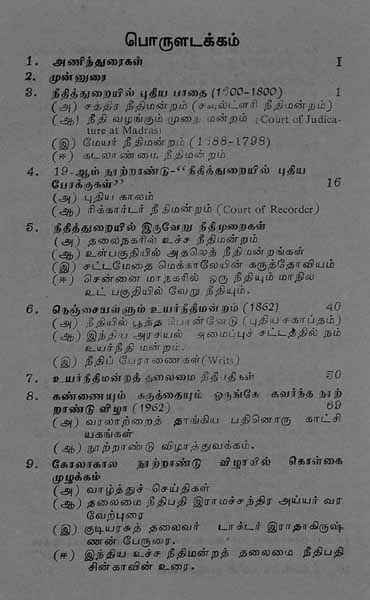 பொருளடக்கம்
1. அணிந்துரைகள் I
2. முன்னுரை
3. நீதித்துறையில் புதிய பாதை (1600-1800) 1
(அ) சத்திர நீதிமன்றம் (சவுல்ட்ரி நீதிமன்றம்)
(ஆ) நீதி வழங்கும் முறை மன்றம் (Court of Judica-
ture at Madras)
(இ) மேயர் நீதிமன்றம் (1688-1798)
(ஈ) கடலாண்மை நீதிமன்றம்
4. 19-ஆம் நூற்றாண்டு-“நீதித்துறையில் புதிய
போக்குகள்” 16
(அ) புதிய காலம்
(ஆ) ரிக்கார்டர் நீதிமன்றம் (Court of Recorder)
5. நீதித்துறையில் இருவேறு நீதிமுறைகள்
(அ) தலைநகரில் உச்ச நீதிமன்றம்
(ஆ) உள்பகுதியில் அதலெத் நீதிமன்றங்கள்
(இ) சட்டமேதை மெக்காலேயின் கருத்தோவியம்
(ஈ) சென்னை மாநகரில் ஒரு நீதியும் மாநில
உட் பகுதியில் வேறு நீதியும்.
6. நெஞ்சையள்ளும் உயர்நீதிமன்றம் (1862) 40
(அ) நீதியில் பூத்த பொன்னேடு (புதிய சகாப்தம்)
(ஆ) இந்திய அரசியல் அமைப்புச் சட்டத்தில் நம்
உயர்நீதி மன்றம்.
(இ) நீதிப் பேராணைகள் (Writs)
7. உயர்நீதிமன்றத் தலைமை நீதிபதிகள் 50
8. கண்ணையும் கருத்தையும் ஒருங்கே கவர்ந்த நூற்
றாண்டு விழா (1962) 69
(அ) வரலாற்றைத் தாங்கிய பதினொரு காட்சி
யகங்கள்
(ஆ) நூற்றாண்டு விழாத்துவக்கம்.
9. கோலாகல நூற்றாண்டு விழாவில் கொள்கை
முழக்கம்
(அ) வாழ்த்துச் செய்திகள்
(ஆ) தலைமை நீதிபதி இராமச்சந்திர அய்யர் வர
வேற்புரை
(இ) குடியரசுத் தலைவர் டாக்டர் இராதாகிருஷ்
ணன் பேருரை.
(ஈ) இந்திய உச்ச நீதிமன்றத் தலைமை நீதிபதி
சின்காவின் உரை.